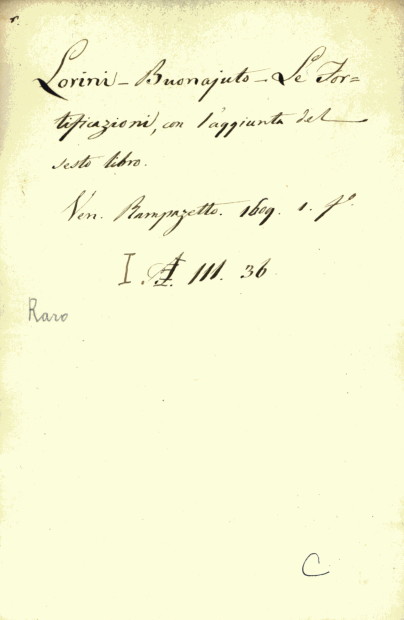 r.
Lorini - Buonajuto - Le For=
tificazioni, con l'aggiunta del
sesto libro.
Ven. Rampazetto. 1609. 1. fº.
I. III. 36
Raro
C